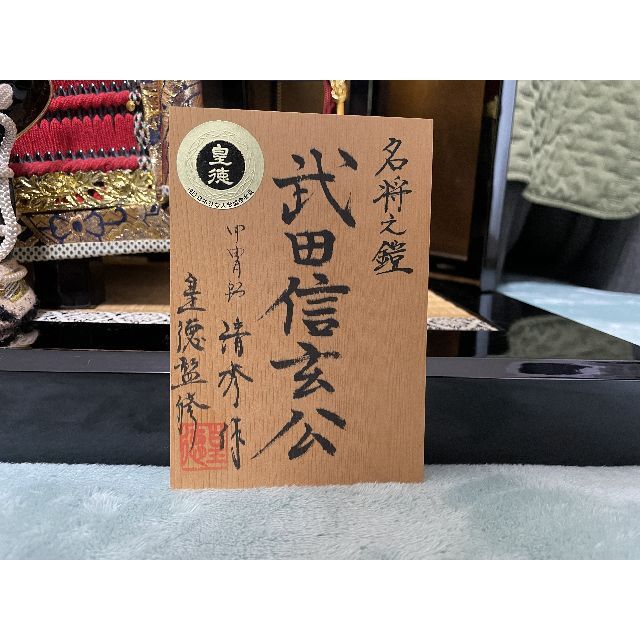 名将之鎧
武田信玄公
甲冑師 清秀作
皇徳監修
皇徳